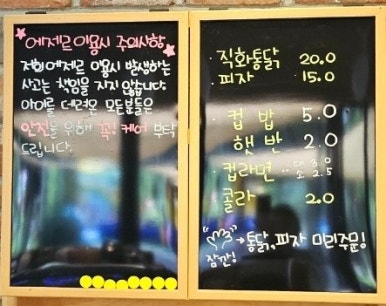 에제르 이용시 주의사항
저희 에제르 이용시 발생하는
사고는 책임을 지지 않습니다.
아이를 데려온 모든분들은
안전을 위해 꼭! 케어 부탁
드립니다.
· 직화통닭 20.0
· 피자 15.0
· 컵 밥 5.0
햇 반 2.0
· 컵라면 대 3.0
소 2.5
콜라 2.0
잠깐! → 통닭, 피자 미리주문!